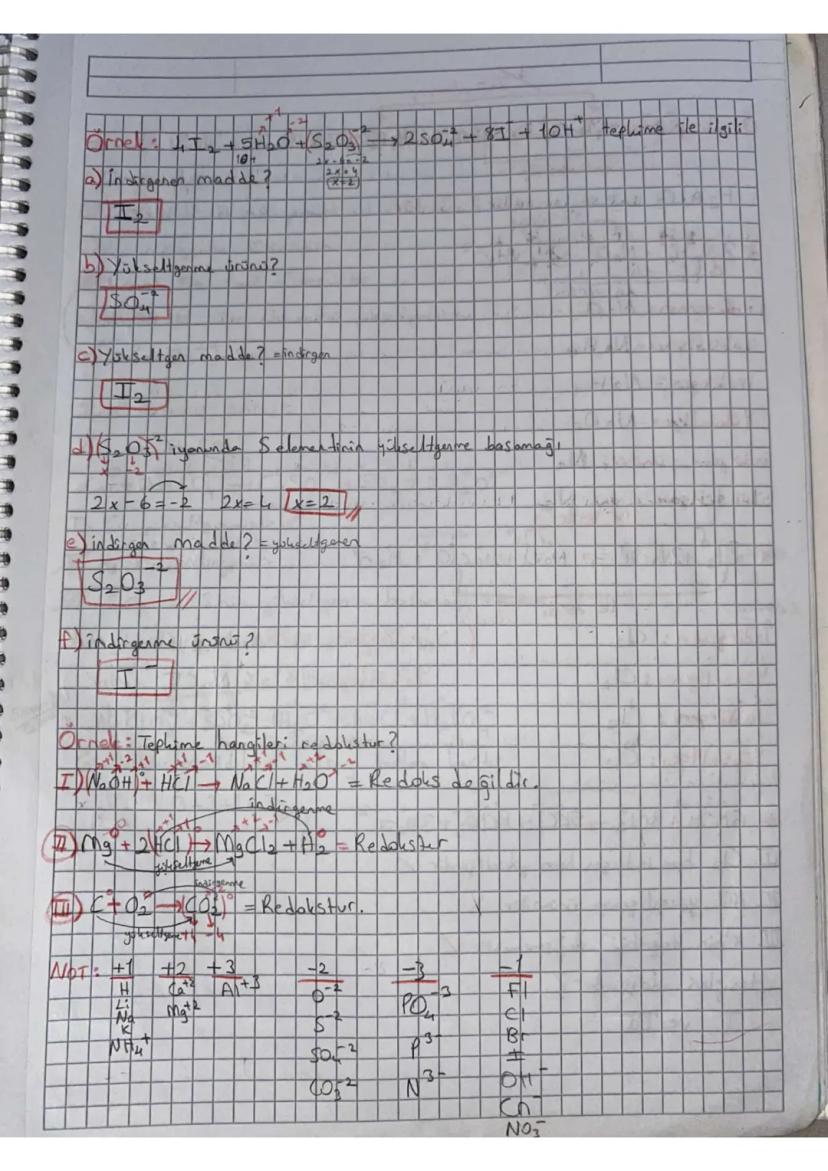 Örnek: 4I₂ + 5H₂O + (S₂O₃)⁻² → 2SO₄⁻² + 8I⁻ + 10H⁺ tepkime ile ilgili
+1 -2
10H 2x-6=-2
2x=4
x=2
a) İndirgenen madde?
I₂
b) Yükseltgenme ürünü?
SO₄⁻²
c) Yükseltgen madde? = indirgen
I₂
d) (S₂O₃)⁻² iyonunda S elementinin yükseltgenme basamağı
x -2
2x-6=-2 2x=4 x=2
e) indirgen madde? = yükseltgenen
S₂O₃⁻²
f) indirgenme ürünü?
I⁻
Örnek: Tepkime hangileri redokstur?
+1 -2 +1 +1 -1 +1 -1 +1 -2
I) (NaOH)⁰ + HCl → NaCl + H₂O = Redoks değildir.
indirgenme
II) Mg⁰ + 2(HCl)⁰ → MgCl₂ + H₂⁰ = Redokstur
yükseltgenme
indirgenme
III) C⁰ + O₂⁰ → (CO₂)⁰ = Redokstur.
yükseltgenme +4 -4
NOT: +1 +2 +3 -2 -3 -1
H Ca⁺² Al⁺³ O⁻² PO₄⁻³ Fl
Li Mg⁺² S⁻² P³⁻ Cl
Na SO₄⁻² N³⁻ Br
K CO₃⁻² I
NH₄⁺ OH⁻
Cn⁻
NO₃⁻